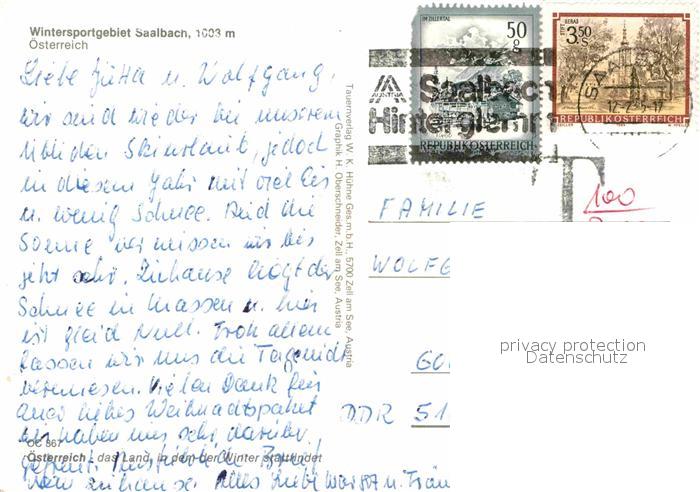 Wintersportgebiet Saalbach, 1003 m
Österreich
Liebe Jutta u. Wolfgang,
wir sind wieder bei unserem
üblichen Skiurlaub, jedoch
in diesem Jahr mit viel Eis
u. wenig Schnee. Auch die
Sonne vermissen wir bis
jetzt sehr. Zuhause liegt der
Schnee in Massen u. hier
ist gleich Null. Trotz allem
lassen wir uns die Tage nicht
vermiesen. Vielen Dank für
euer liebes Weihnachtspaket
wir haben uns sehr darüber
gefreut. Ausführlicher Brief
von zuhause. Alles Liebe
OC 367
Österreich - das Land, in dem der Winter stattfindet
Tauernverlag W. K. Hühne Ges.m.b.H. 5700 Zell am See, Austria
Graphik H. Oberschneider, Zell am See, Austria
IM ZILLERTAL
50
g
REPUBLIK ÖSTERREICH
STIFT GERAS
3.50
S
REPUBLIK ÖSTERREICH
AUSTRIA
Saalbach
Hinterglemm
100
FAMILIE
WOLFG
GO
DDR 51
privacy protection
Datenschutz